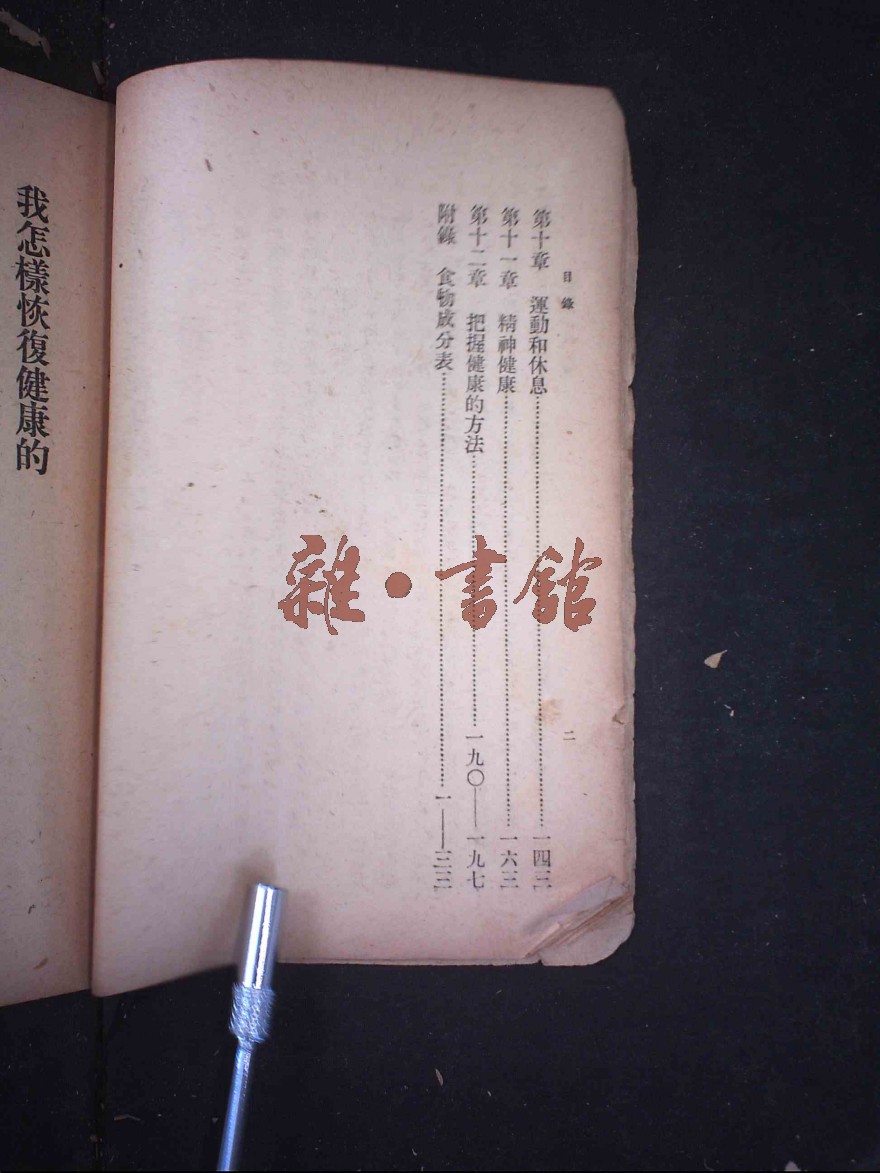 目錄
二
第十章 運動和休息…………一四三
第十一章 精神健康…………一六三
第十二章 把握健康的方法…………一九〇——一九七
附錄 食物成分表…………一——三三
我怎樣恢復健康的
雜·書館